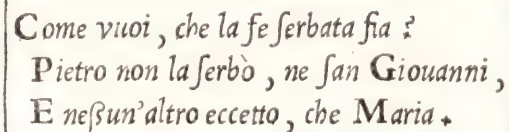 Come vuoi, che la fe ſerbata ſia ?
Pietro non la ſerbò, ne ſan Giouanni,
E neſſun'altro eccetto, che Maria.